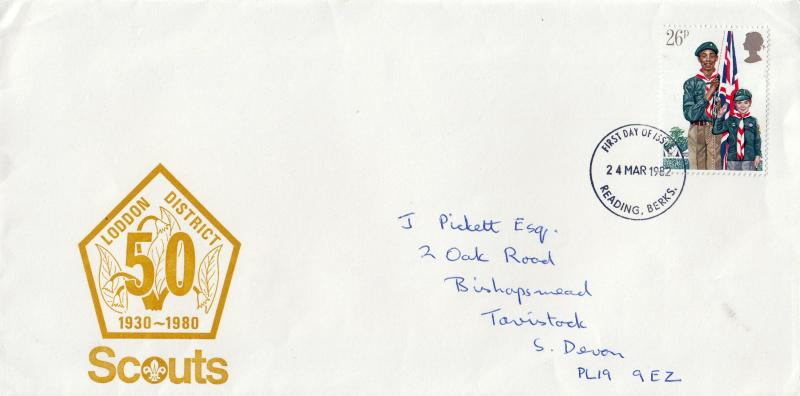 26P
FIRST DAY OF ISSUE
24 MAR 1982
READING, BERKS.
J Pickett Esq.
2 Oak Road
Bishapsmead
Tavistock
S. Devon
PL19 9EZ
LODDON DISTRICT
50
1930~1980
Scouts